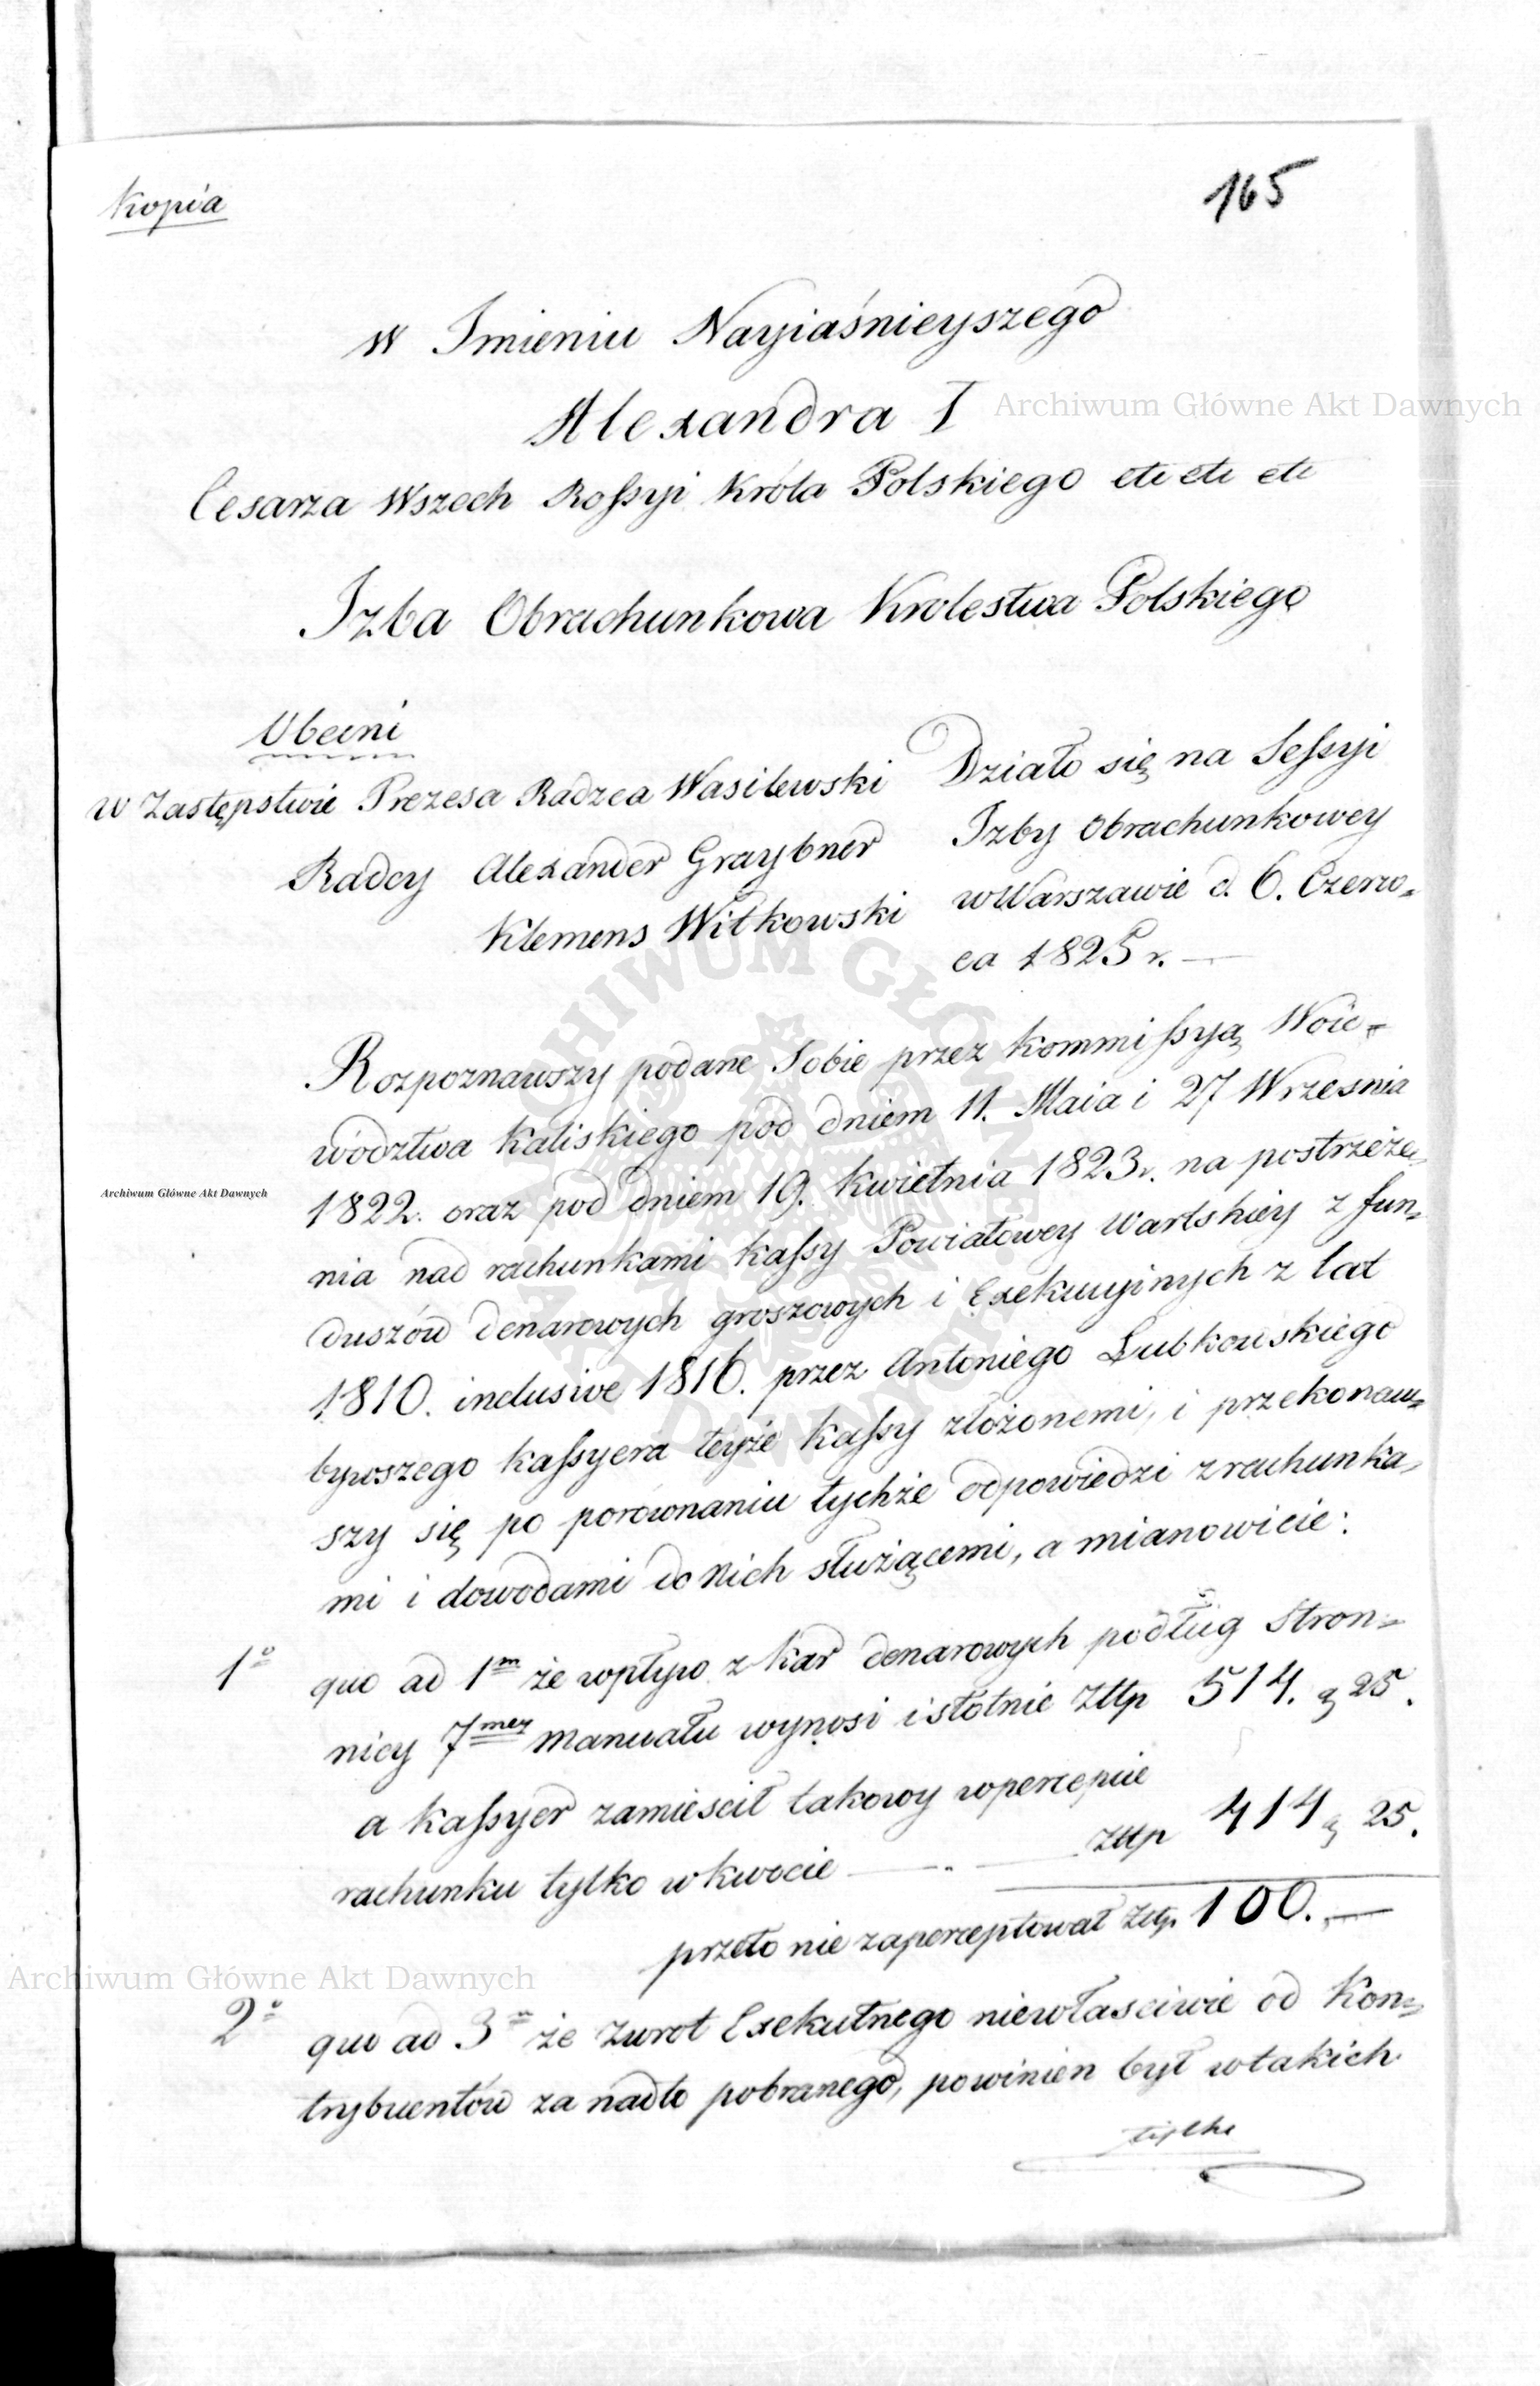 Kopia
165
w Imieniu Nayiaśnieyszego
Alexandra I
Archiwum Główne Akt Dawnych
Cesarza Wszech Rossyi Króla Polskiego etc etc etc
Izba Obrachunkowa Krolestwa Polskiego
Obecni
w Zastępstwie Prezesa Radzca Wasilewski
Radcy Alexander Graybner
Klemens Witkowski
Działo się na Sessyi
Izby Obrachunkowey
w Warszawie d. 6. Czerw=
ca 1825 r.
Rozpoznawszy podane Sobie przez Kommissyą Woie=
wództwa Kaliskiego pod dniem 11. Maia i 27 Wrzesnia
1822. oraz pod dniem 19. Kwietnia 1823 r. na postrzeże=
nia nad rachunkami Kassy Powiatowey Wartskiey z fun=
duszów denarowych groszowych i Exekucyinych z lat
1810. inclusive 1816. przez Antoniego Lubkowskiego
bywszego Kassyera teyże Kassy złożonemi, i przekonaw=
szy się po porównaniu tychże odpowiedzi z rachunka=
mi i dowodami do nich służącemi, a mianowicie:
1º quo ad 1m że wpływ z kar denarowych podług Stron=
nicy 7mey manuału wynosi istotnie Złtp 514. g 25.
a Kassyer zamiescił takowy w percepcie
rachunku tylko w kwocie złtp 414 g 25.
przeto nie zaperceptował złtp. 100.—
2º quo ad 3m że zwrot Exekutnego niewłasciwie od Kon=
trybuentów za nadto pobranego, powinien był w takich
tylko
Archiwum Główne Akt Dawnych
Archiwum Główne Akt Dawnych
ARCHIWUM GŁÓWNE AKT DAWNYCH